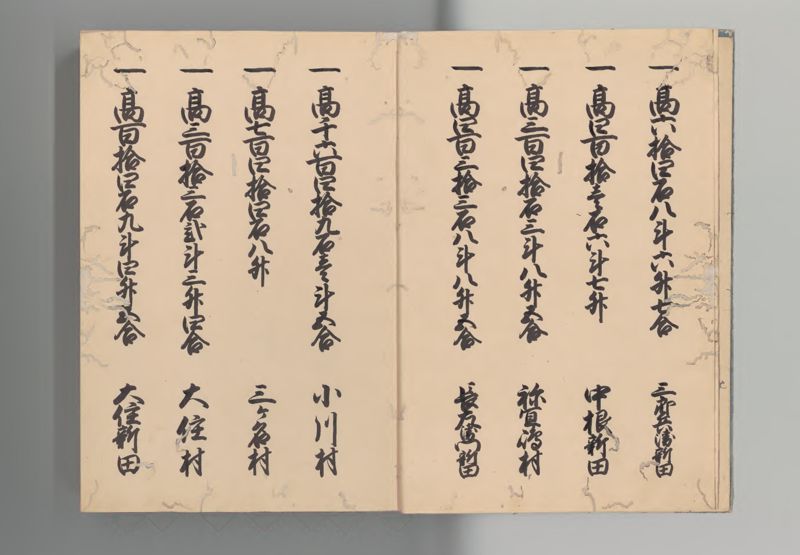 一 高六拾四石八斗六升七合 三郎兵衛新田
一 高四百拾壱石六斗七升 中根新田
一 高三百四拾石三斗八升五合 祢宜嶋村
一 高四百三拾三石八斗八升五合 長右衛門新田
一 高千六百四拾九石壱斗五合 小川村
一 高七百四拾四石八升 三ヶ名村
一 高三百拾三石弐斗三升四合 大住村
一 高百拾四石九斗四升五合 大住新田